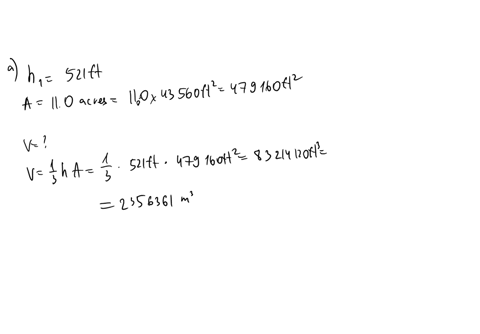 a) h₁ = 521 ft
A = 11.0 acres = 11.0 × 43 560 ft² = 479 160 ft²
V = ?
V = 1/3 h A = 1/3 · 521 ft · 479 160 ft² = 83214120 ft³ =
= 2356361 m³